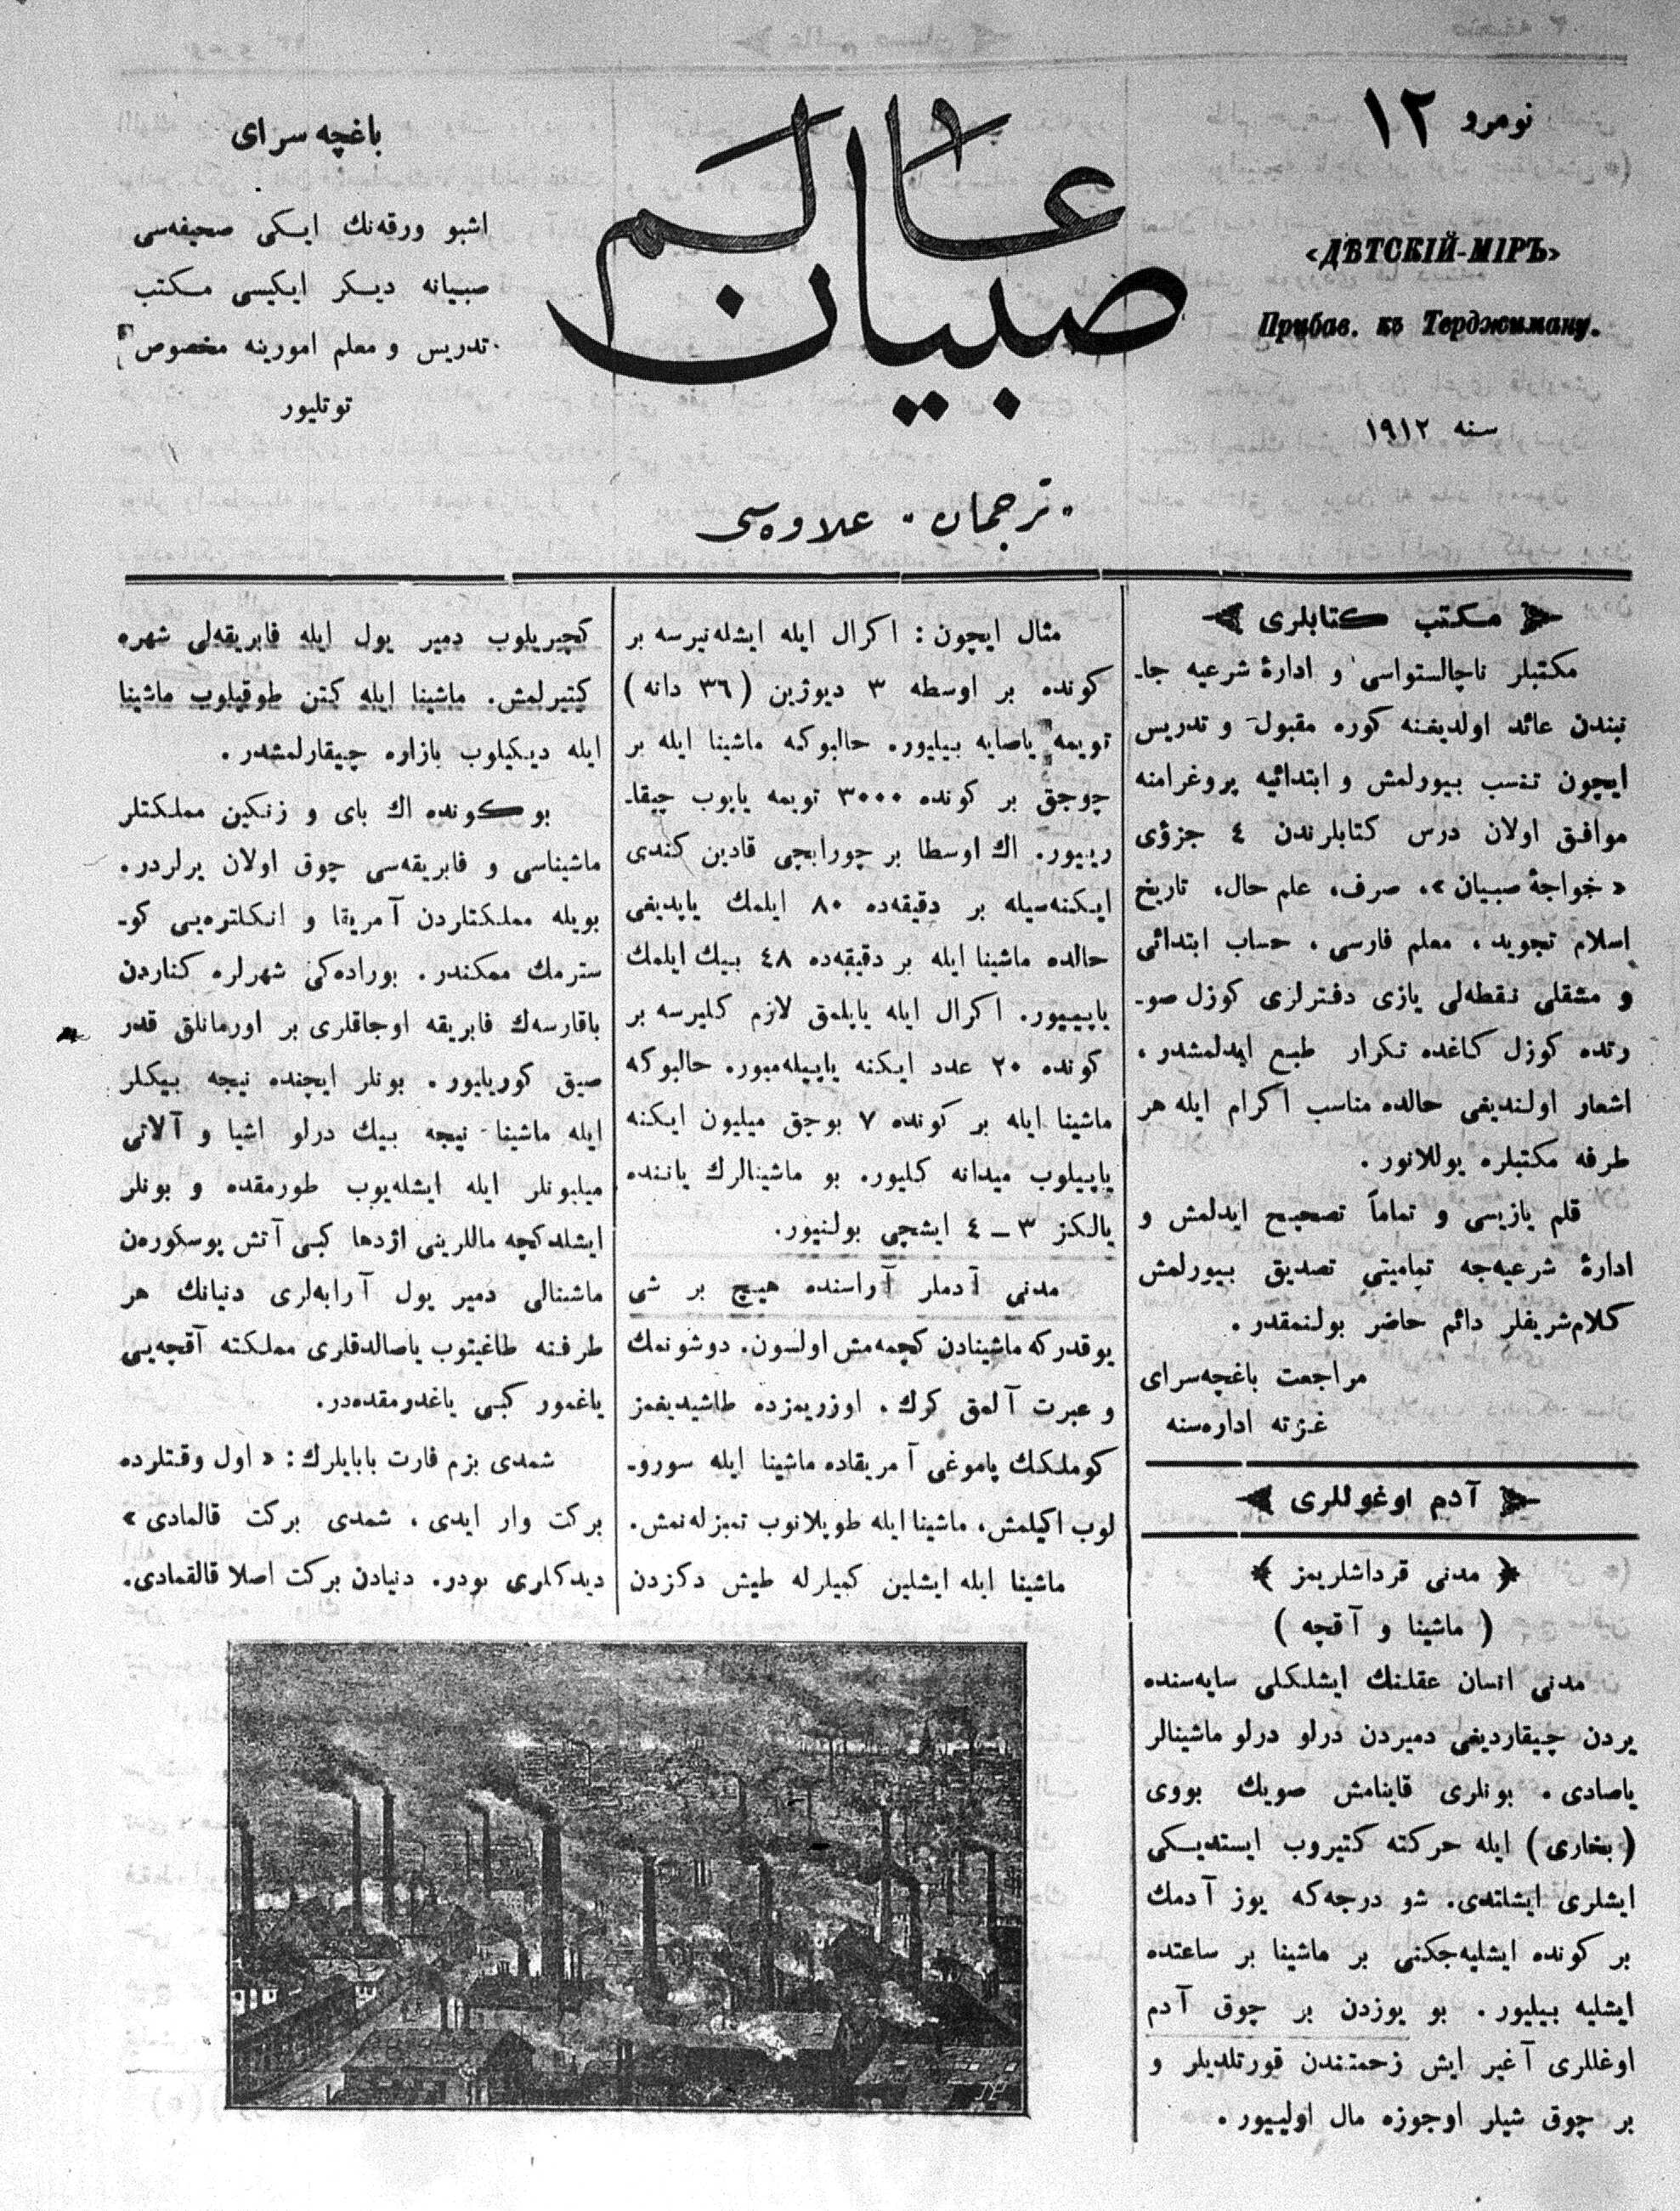 نومرو ١٢
«ДѢТСКІЙ-МІРЪ»
Прибав. къ Терджиману.
سنه ١٩١٢
عالم صبيان
«ترجمان» علاوه‌سى
باغچه سراى
اشبو ورقه‌نك ايكى صحيفه‌سى
صبيانه ديكر ايكيسى مكتب
تدريس و معلم امورينه مخصوص
توتليور
مكتب كتابلرى
مكتبلر ناچالستواسى و ادارهٔ شرعيه جا-
نبندن عائد اولديغنه كوره مقبول و تدريس
ايچون تنسب بيورلمش و ابتدائيه پروغرامنه
موافق اولان درس كتابلرندن ٤ جزؤى
«خواجهٔ صبيان»، صرف، علم حال، تاريخ
اسلام تجويد، معلم فارسى، حساب ابتدائى
و مشقلى نقطه‌لى يازى دفترلرى كوزل صو-
رتده كوزل كاغده تكرار طبع ايدلمشدر،
اشعار اولنديغى حالده مناسب اكرام ايله هر
طرفه مكتبلره يوللانور.
قلم يازيسى و تماماً تصحيح ايدلمش و
ادارهٔ شرعيه‌جه تماميتى تصديق بيورلمش
كلام شريفلر دائم حاضر بولنمقدر.
مراجعت باغچه‌سراى
غزته اداره‌سنه
آدم اوغوللرى
مدنى قرداشلريمز
(ماشينا و آقچه)
مدنى انسان عقلنك ايشلكلى سايه‌سنده
يردن چيقارديغى دميردن درلو درلو ماشينالر
ياصادى. بونلرى قاينامش صويك بووى
(بخارى) ايله حركته كتيروب ايستديكى
ايشلرى ايشلتدى. شو درجه‌كه يوز آدمك
بر كونده ايشليه‌جكنى بر ماشينا بر ساعتده
ايشليه بيليور. بو يوزدن بر چوق آدم
اوغللرى آغير ايش زحمتندن قورتلديلر و
بر چوق شيلر اوجوزه مال اوليبور.
مثال ايچون: اكرال ايله ايشله‌نيرسه بر
كونده بر اوسطه ٣ ديوژين (٣٦ دانه)
تويمه ياصايه بيليور. حالبوكه ماشينا ايله بر
چوجق بر كونده ٣٠٠٠ تويمه ياپوب چيقا-
ريبور. اك اوسطا بر چورابچى قادين كندى
ايكنه‌سيله بر دقيقه‌ده ٨٠ ايلمك ياپديغى
حالده ماشينا ايله بر دقيقه‌ده ٤٨ بيك ايلمك
ياپيبور. اكرال ايله ياپلمق لازم كليرسه بر
كونده ٢٠ عدد ايكنه ياپيله‌ميور. حالبوكه
ماشينا ايله بر كونده ٧ بوچق ميليون ايكنه
ياپيلوب ميدانه كليور. بو ماشينالرك ياننده
يالكز ٣ــ٤ ايشچى بولنيور.
مدنى آدملر آراسنده هيچ بر شى
يوقدركه ماشينادن كچمه‌مش اولسون. دوشونمك
و عبرت آلمق كرك. اوزريمزده طاشيديغمز
كوملكك پاموغى آمريقاده ماشينا ايله سورو-
لوب اكيلمش، ماشينا ايله طوپلانوب تميزله‌نمش.
ماشينا ايله ايشلين كميلرله طيش دكزدن
كچيريلوب دمير يول ايله فابريقه‌لى شهره
كتيرلمش. ماشينا ايله كتن طوقيلوب ماشينا
ايله ديكيلوب بازاره چيقارلمشدر.
بو كونده اك باى و زنكين مملكتلر
ماشيناسى و فابريقه‌سى چوق اولان يرلردر.
بويله مملكتلردن آمريقا و انكلتره‌يى كو-
سترمك ممكندر. بوراده‌كى شهرلره كناردن
باقارسه‌ك فابريقه اوجاقلرى بر اورمانلق قدر
صيق كوريليور. بونلر ايچنده نيجه بيكلر
ايله ماشينا نيجه بيك درلو اشيا و آلاتى
ميليونلر ايله ايشله‌يوب طورمقده و بونلر
ايشله‌دكچه ماللرينى اژدها كبى آتش پوسكوره‌ن
ماشنالى دمير يول آرابه‌لرى دنيانك هر
طرفنه طاغيتوب ياصالدقلرى مملكته آقچه‌يى
ياغمور كبى ياغدرمقده‌در.
شمدى بزم قارت بابايلرك: «اول وقتلرده
بركت وار ايدى، شمدى بركت قالمادى»
ديدكلرى بودر. دنيادن بركت اصلا قالقمادى.